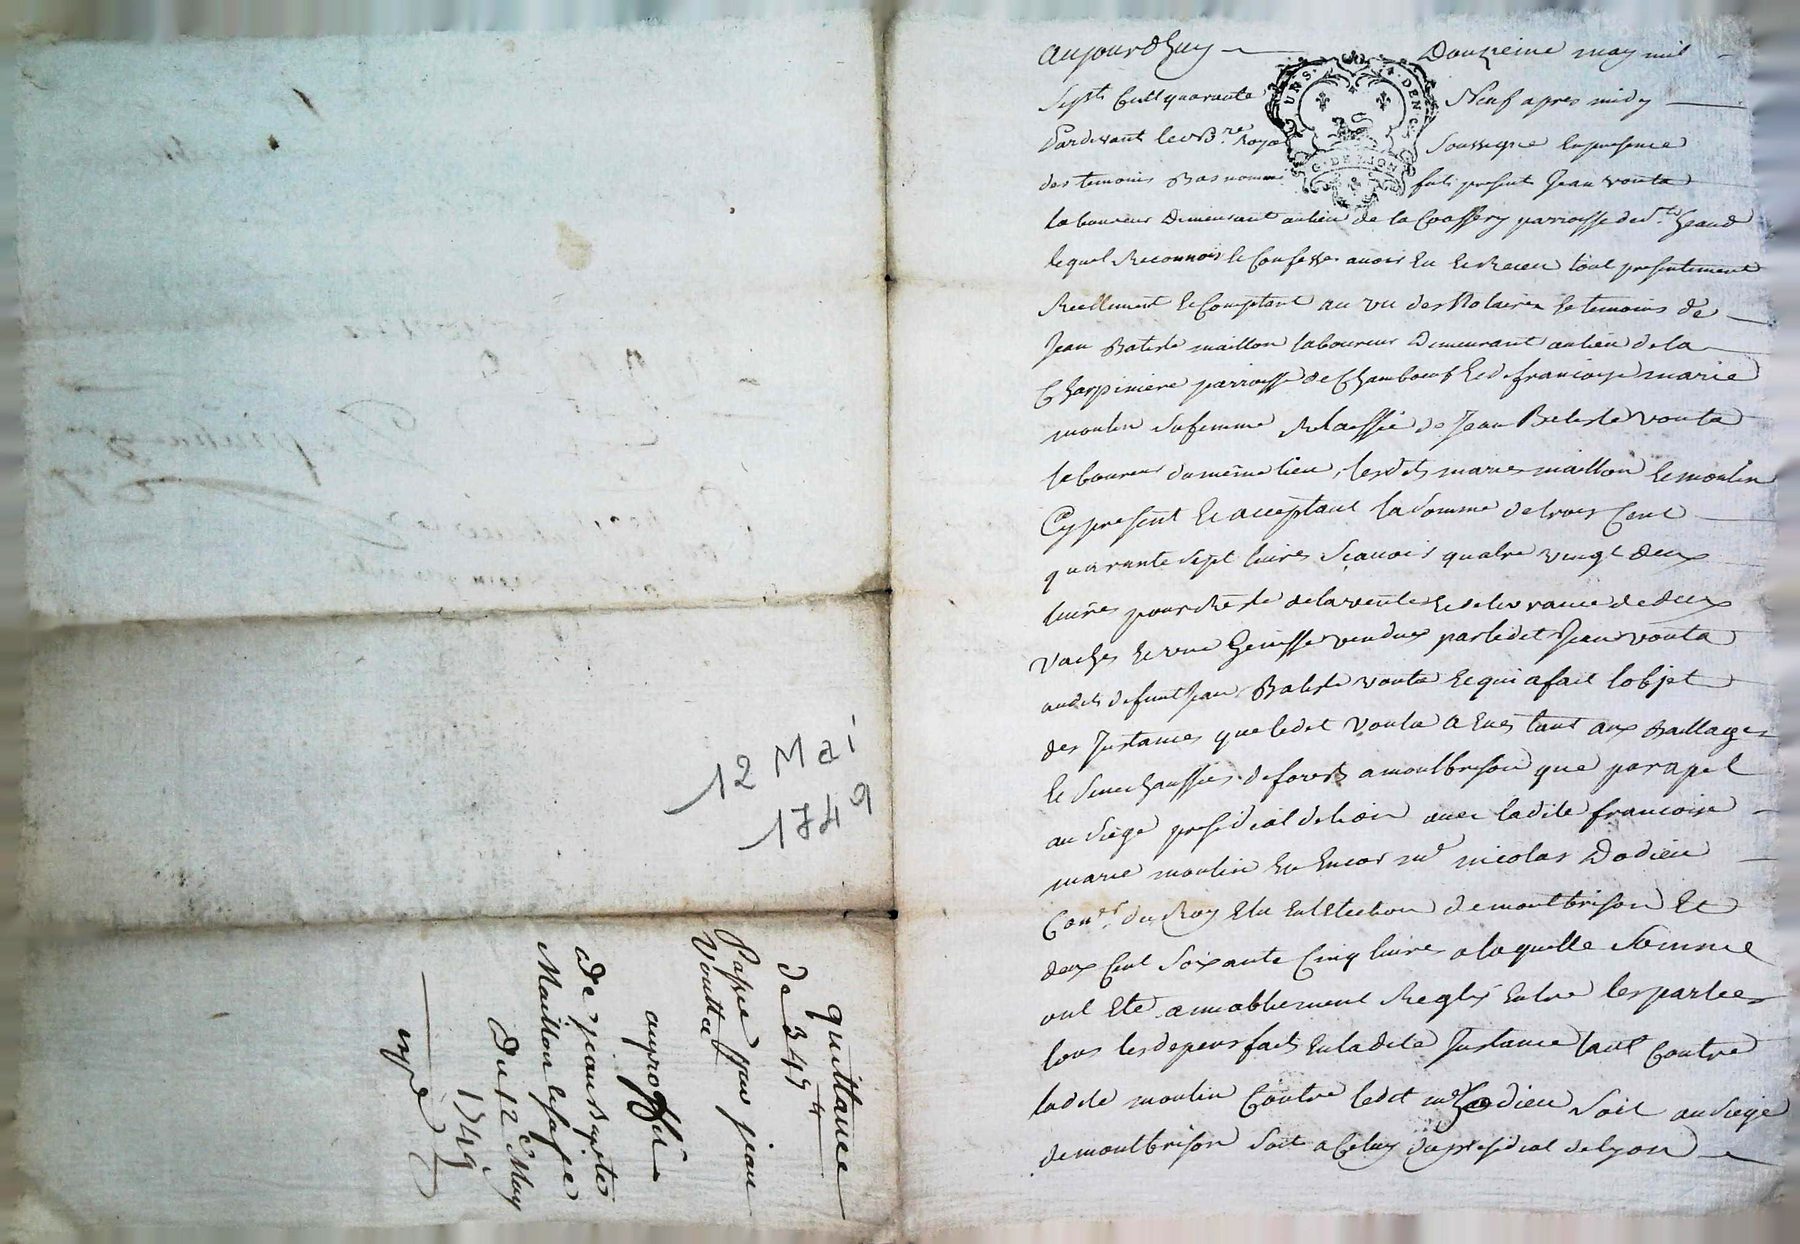 12 Mai
1749
quittance
de 347 ₶
Passé par jean
Voutta
au proffit
De jean Baptte
Maillon le sage
Du 12e May
1749
Aujourdhuy Douzeime may mil
Sept Cent quarante Neuf apres midy
Pardevant le Nore Royal Soussigné En presence
des temoins Bas nommé fut present Jean vouta
laboureur Demeurant au lieu de la Coassery parroisse de St
lequel Reconnois et Confesse avoir Eu et Receu tout presentement
Reellement et Comptant au vu des Notaire et temoins de
Jean Batiste maillon laboureur Demeurant au lieu de la
Charpiniere parroisse de Chambœuf et de francoise marie
moulin sa femme Relaissée de Jean Batiste vouta
laboureur du même lieu, lesdits maries maillon et moulin
Cy present et acceptant la Somme de trois Cent
quarante sept livres Sçavoir quatre vingt deux
livres pour Reste de la vente et delivrance de deux
vaches et une Genisse vendues par ledit Jean vouta
audit defunt Jean Batiste vouta et qui a fait lobjet
des Instances que ledit Vouta a Eues tant aux Baillage
et Senechaussées de forest a montbrison que par apel
au Siege presidial de lion avec ladite francoise
marie moulin Eu Encor me nicolas Dodieu
Coner du Roy Elu En l'Election de montbrison Et
deux Cent Soixante Cinq livres a laquelle Somme
ont Eté amiablement Reglés Entre les parties
tous les depens faits En ladite Instance tant Contre
ladite moulin Contre ledit me Dodieu Soit au Siege
de montbrison Soit a Celuy du presidial de lyon
URS DEN
G DE LION